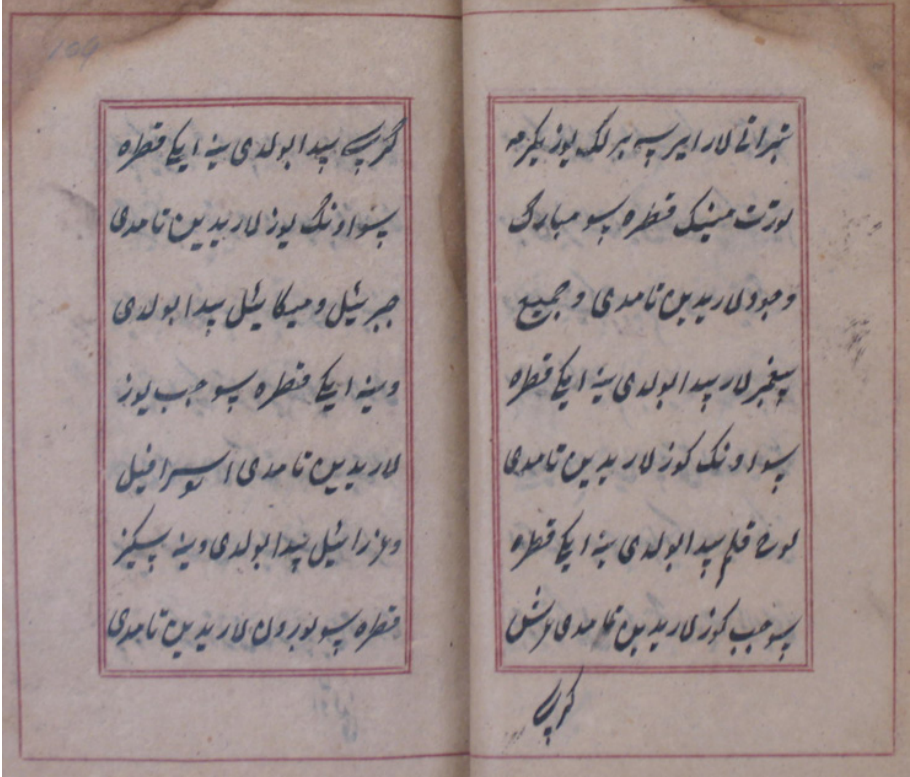 تبراتی لار ایردی بر لک یوز یکرمه
تورت مینک قطره سو مبارک
وجودلاریدین تامدی و جمیع
پیغمبرلار پیدا بولدی ینه ایکی قطره
سو اونک کوزلاریدین تامدی
لوح قلم پیدا بولدی ینه ایکی قطره
سو چب کوزلاریدین تامدی عرش
کرسی
کرسی پیدا بولدی ینه ایکی قطره
سو اونک یوزلاریدین تامدی
جبرئیل و میکائیل پیدا بولدی
و ینه ایکی قطره سو چب یوز
لاریدین تامدی اسرافیل
و عزرائیل پیدا بولدی و ینه سیکز
قطره سو بورونلاریدین تامدی